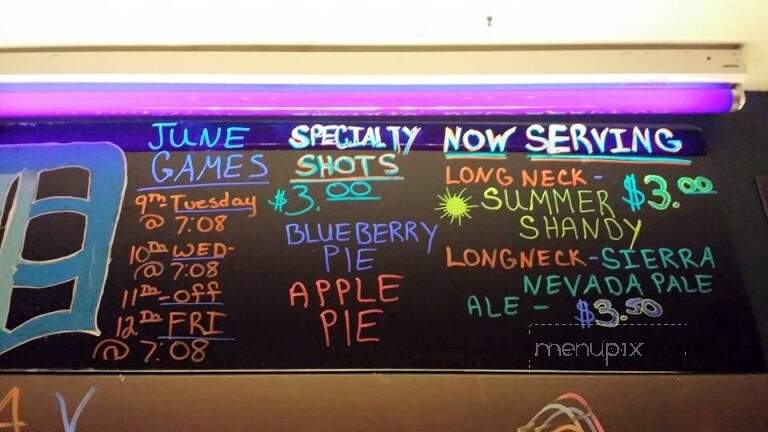 JUNE
GAMES
9TH Tuesday
@ 7:08
10TH WED-
@ 7:08
11TH-Off
12TH FRI
@ 7:08
SPECIALTY
SHOTS
$3.00
BLUEBERRY
PIE
APPLE
PIE
NOW SERVING
LONG NECK - $3.00
SUMMER
SHANDY
LONGNECK-SIERRA
NEVADA PALE
ALE - $3.50
menupix